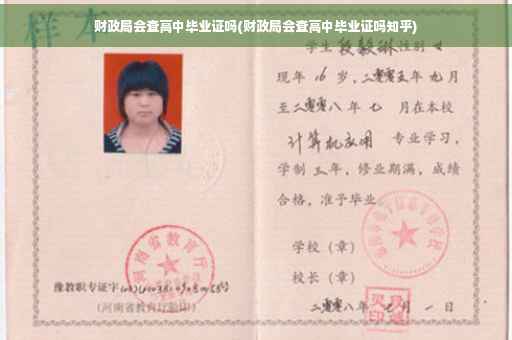 财政局会查高中毕业证吗(财政局会查高中毕业证吗知乎)
样本
学生 段毅琳 性别 女
现年 16 岁，二零零五年 九 月
至二零零八年 七 月在本校
计算机应用 专业学习，
学制 三 年，修业期满，成绩
合格，准予毕业
学校（章）
校长（章）
二零零八年 七 月 一 日
河南省教育厅
豫教职专证字
(河南省教育厅验印)